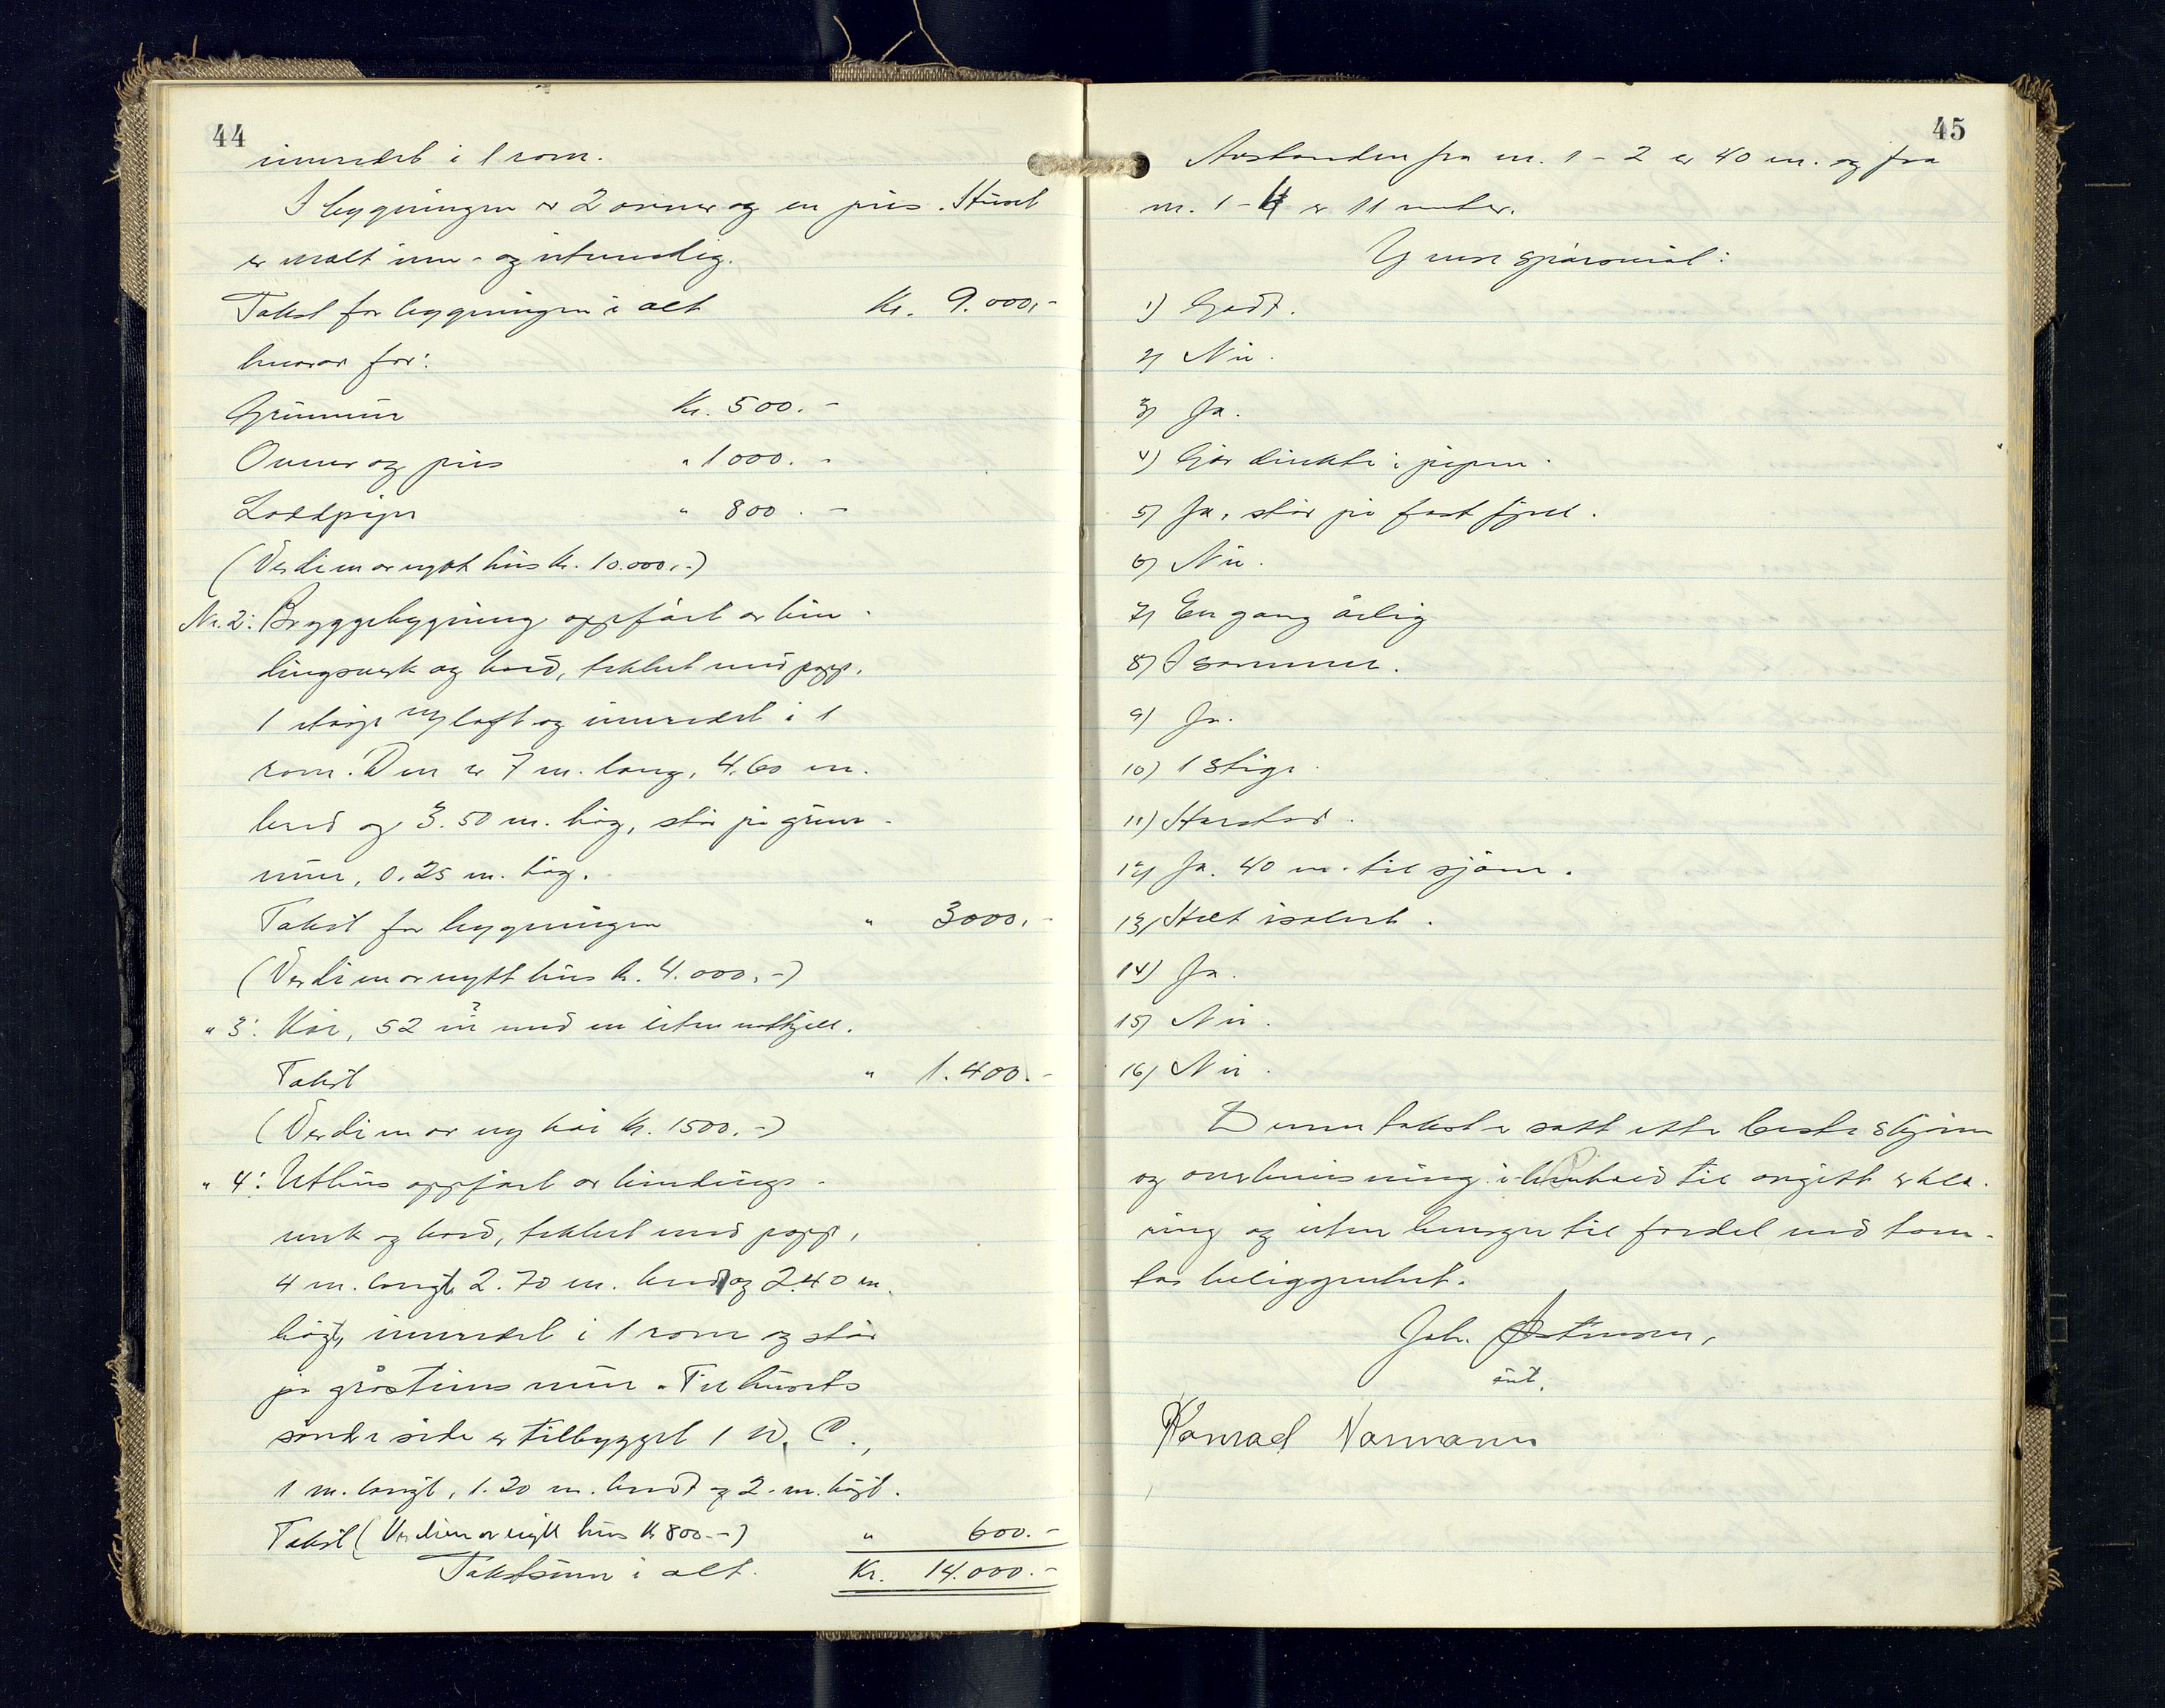 44
innredet i 1 rom.
I bygningen er 2 ovner og en pris. Huset
er malt inn- og utvendig.
Takst for bygningen i alt Kr. 9.000,-
hvorav for:
Grunnmur Kr. 500.-
Ovner og pris " 1000.-
Loddpipe " 800.-
(Verdien av nytt hus kr. 10.000,-)
Nr. 2: Bryggebygning oppført av bin-
dingsverk og bord, tekket med papp.
1 etasje m/ loft og innredet i 1
rom. Den er 7 m. lang, 4,60 m.
bred og 3.50 m. høg, står på grunn-
mur, 0,25 m. høg.
Takst for bygningen " 3000.-
(Verdien av nytt hus kr. 4.000,-)
" 3: Kai, 52 m² med en liten
Takst " 1.400.-
(Verdien av ny kai kr. 1500.-)
" 4: Uthus oppført av bindings-
verk og bord, tekket med papp,
4 m. langt, 2.70 m. bredt og 2.40 m.
høgt, innredet i 1 rom og står
på gråsteins mur. Til husets
søndre side er tilbygget 1 W.C.,
1 m. langt, 1.20 m. bredt og 2.- m. høgt.
Takst (Verdien av nytt hus kr 800.-) " 600.-
Takstsum i alt. Kr. 14.000.-
45
Avstanden fra nr. 1 - 2 er 40 m. og fra
nr. 1 - 4 er 11 meter.
Ymse spørsmål:
1) Godt.
2) Nei.
3) Ja.
4) Går direkte i pipen.
5) Ja, står på fast fjell.
6) Nei.
7) En gang årlig
8) I sommer.
9) Ja.
10) 1 stige.
11) Harstad.
12) Ja. 40 m. til sjøen.
13) Helt isolert.
14) Ja.
15) Nei.
16) Nei.
Denne takst er satt etter beste skjønn
og overbevisning i henhold til avgitt erklæ-
ring og uten hensyn til fordel ved tom-
tas beliggenhet.
Joh. Østensen,
Konrad Normann